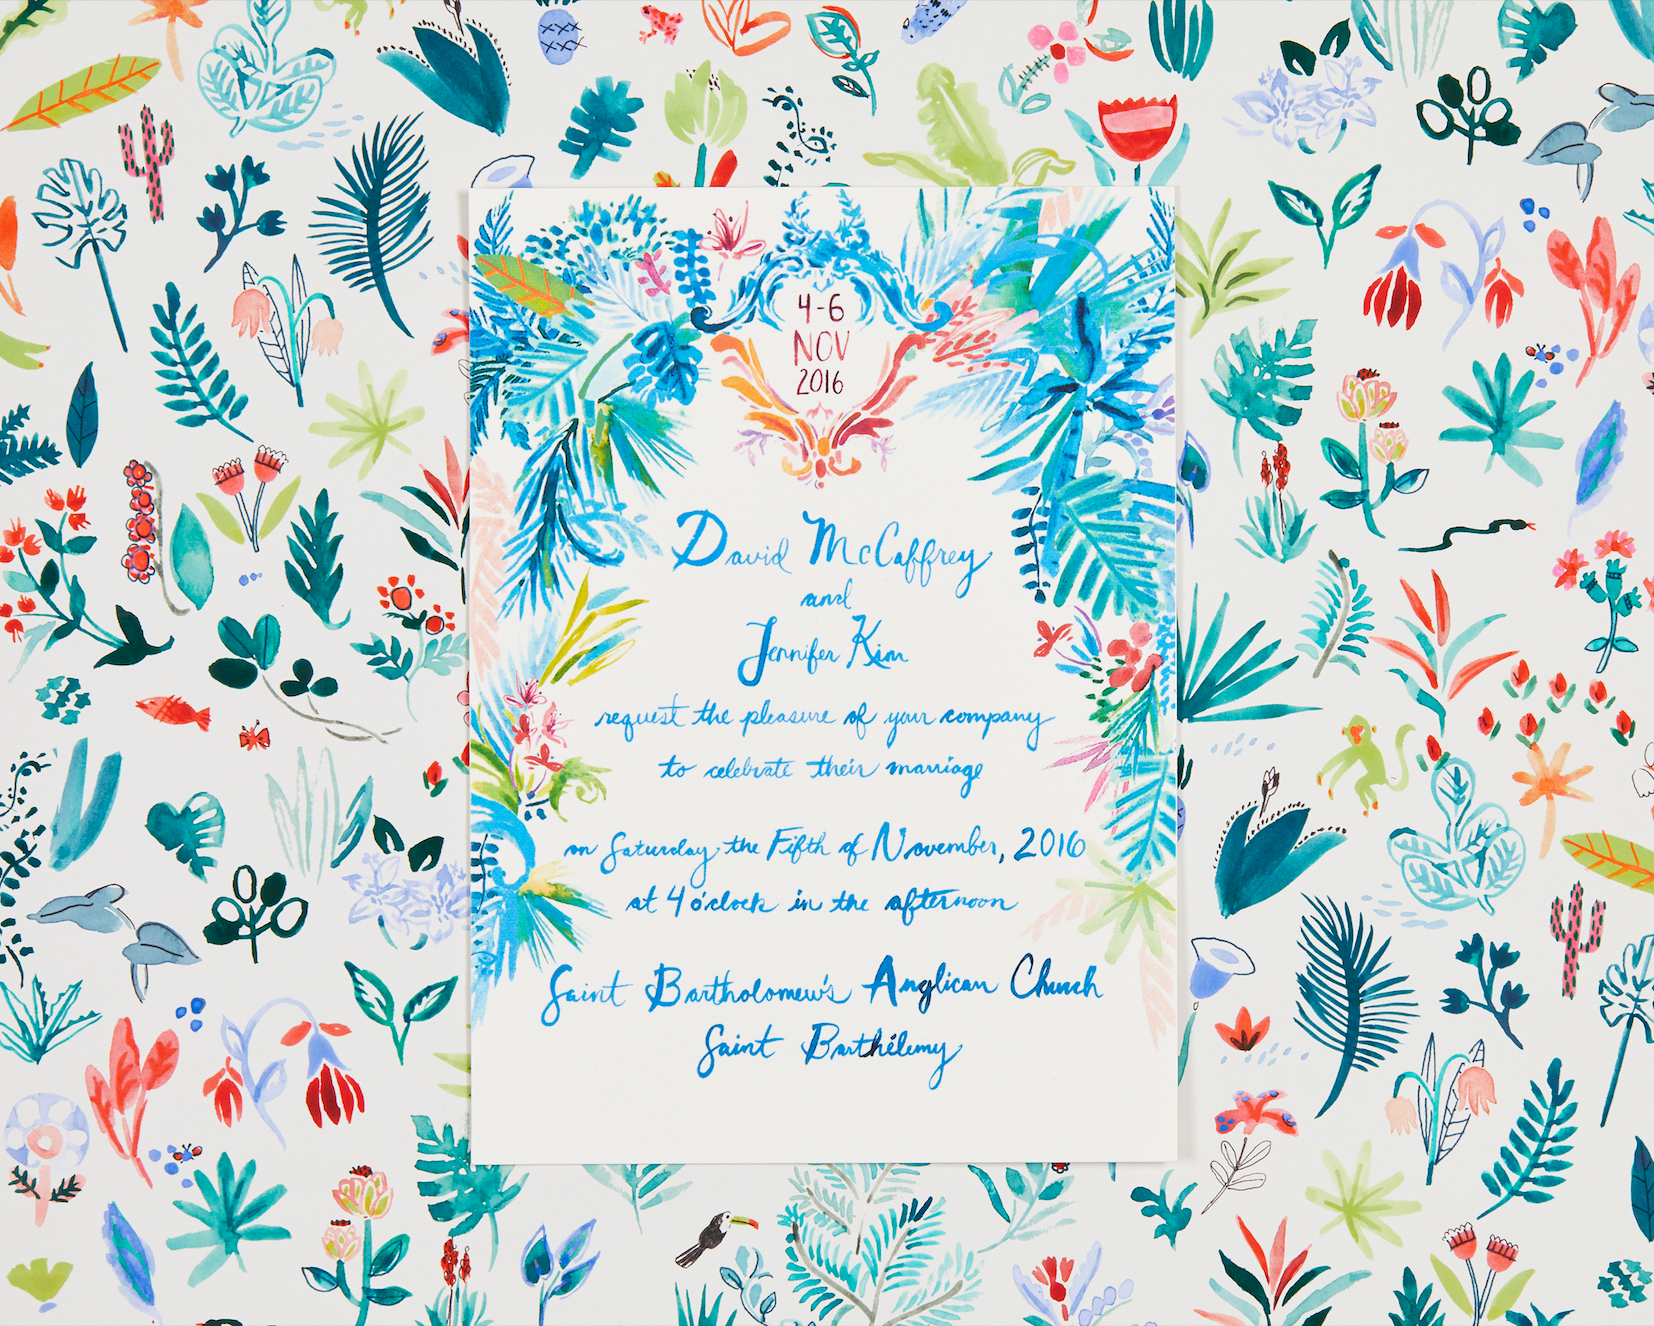 4-6
NOV
2016
David McCaffrey
and
Jennifer Kim
request the pleasure of your company
to celebrate their marriage
on Saturday the Fifth of November, 2016
at 4 o'clock in the afternoon
Saint Bartholomew's Anglican Church
Saint Barthélemy